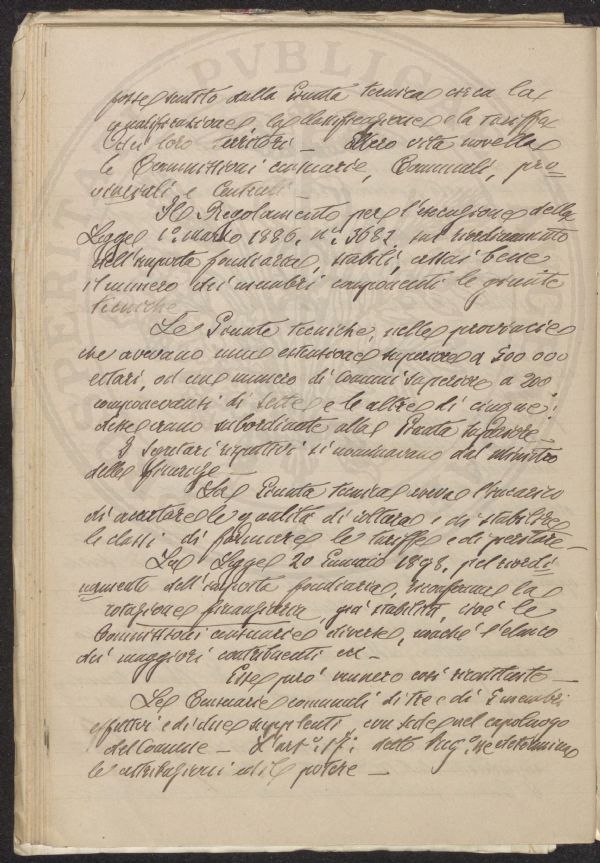 fosse sentito dalla Giunta tecnica circa la
qualificazione, la classificazione e la tariffa
dei loro territori — Ebbero vita novella
le Commissioni censuarie, Comunali, pro-
vinciali e Centrali —
Il Regolamento per l'esecuzione della
Legge 1° Marzo 1886, n.° 3682, sul riordinamento
dell'imposta fondiaria, stabilì, assai bene
il numero dei membri componenti le giunte
tecniche —
Le Giunte tecniche, nelle provincie
che avevano una estensione superiore a 500 000
ettari, od un numero di Comuni superiore a 200
componevansi di sette e le altre di cinque:
desse erano subordinate alla Giunta Superiore —
I segretari rispettivi si nominavano dal Ministro
delle finanze —
La Giunta tecnica aveva l'incarico
di accertare le qualità di coltura e di stabilire
le classi di formare le tariffe e di peritare —
La Legge 20 Gennaio 1898, pel riordi-
namento dell'imposta fondiaria, la
già stabilita, cioè le
Commissioni censuarie diverse, nonché l'elenco
dei maggiori contribuenti ecc —
Esse però vennero così ricostituite —
Le Censuarie comunali di tre e di 5 membri
effettivi e di due supplenti, con sede nel capoluogo
del Comune — L'art.° 17.° detto Reg.° ne determinava
le attribuzioni ed il potere —
PVBLICA